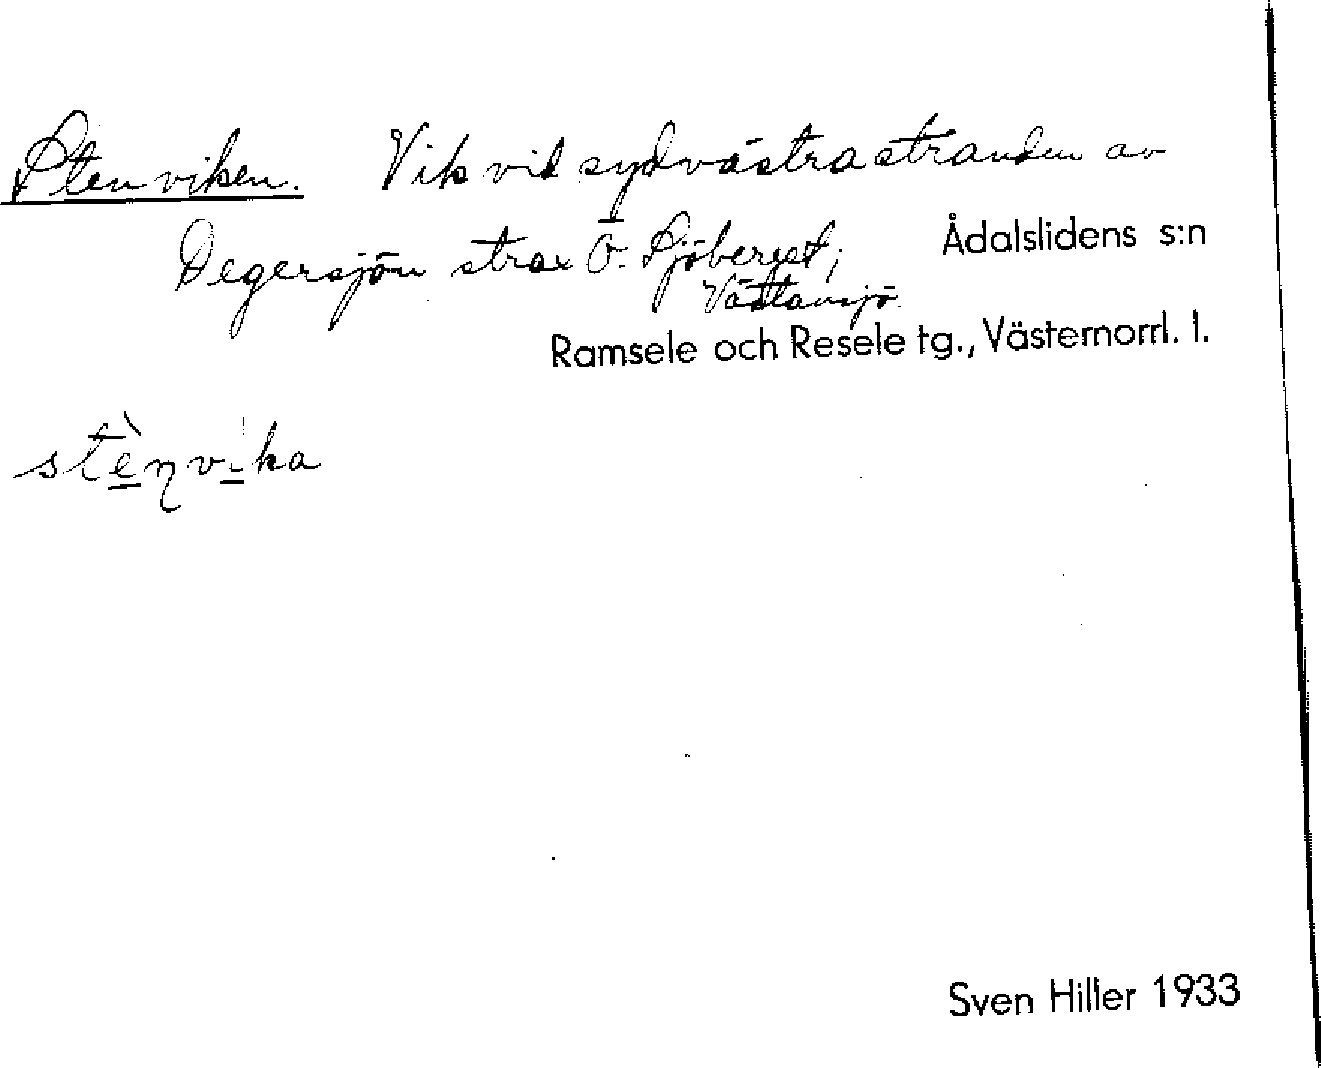 Stenviken. Vik vid sydvästra stranden av
Degersjön strax Ö. Sjöberget; Ådalslidens s:n
Västansjö
Ramsele och Resele tg., Västernorrl. l.
stènvika
Sven Hiller 1933